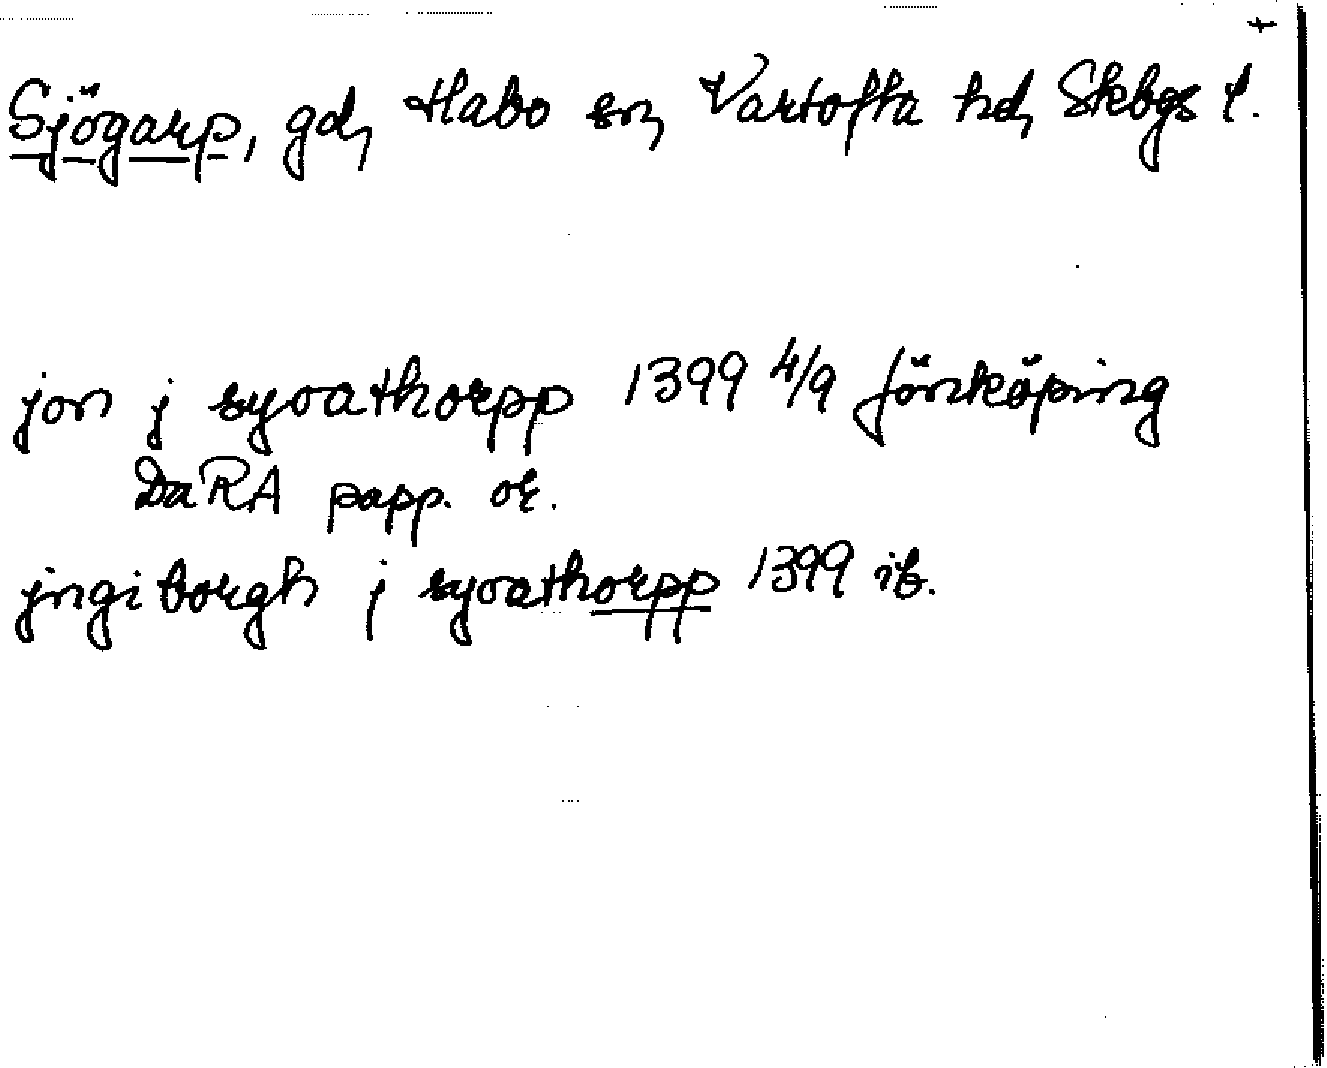 Sjögarp, gd, Habo sn, Vartofta hd, Skbgs l.
jon j syoathorpp 1399 4/9 Jönköping
DaRA papp. or.
jngiborgh j syoathorpp 1399 ib.